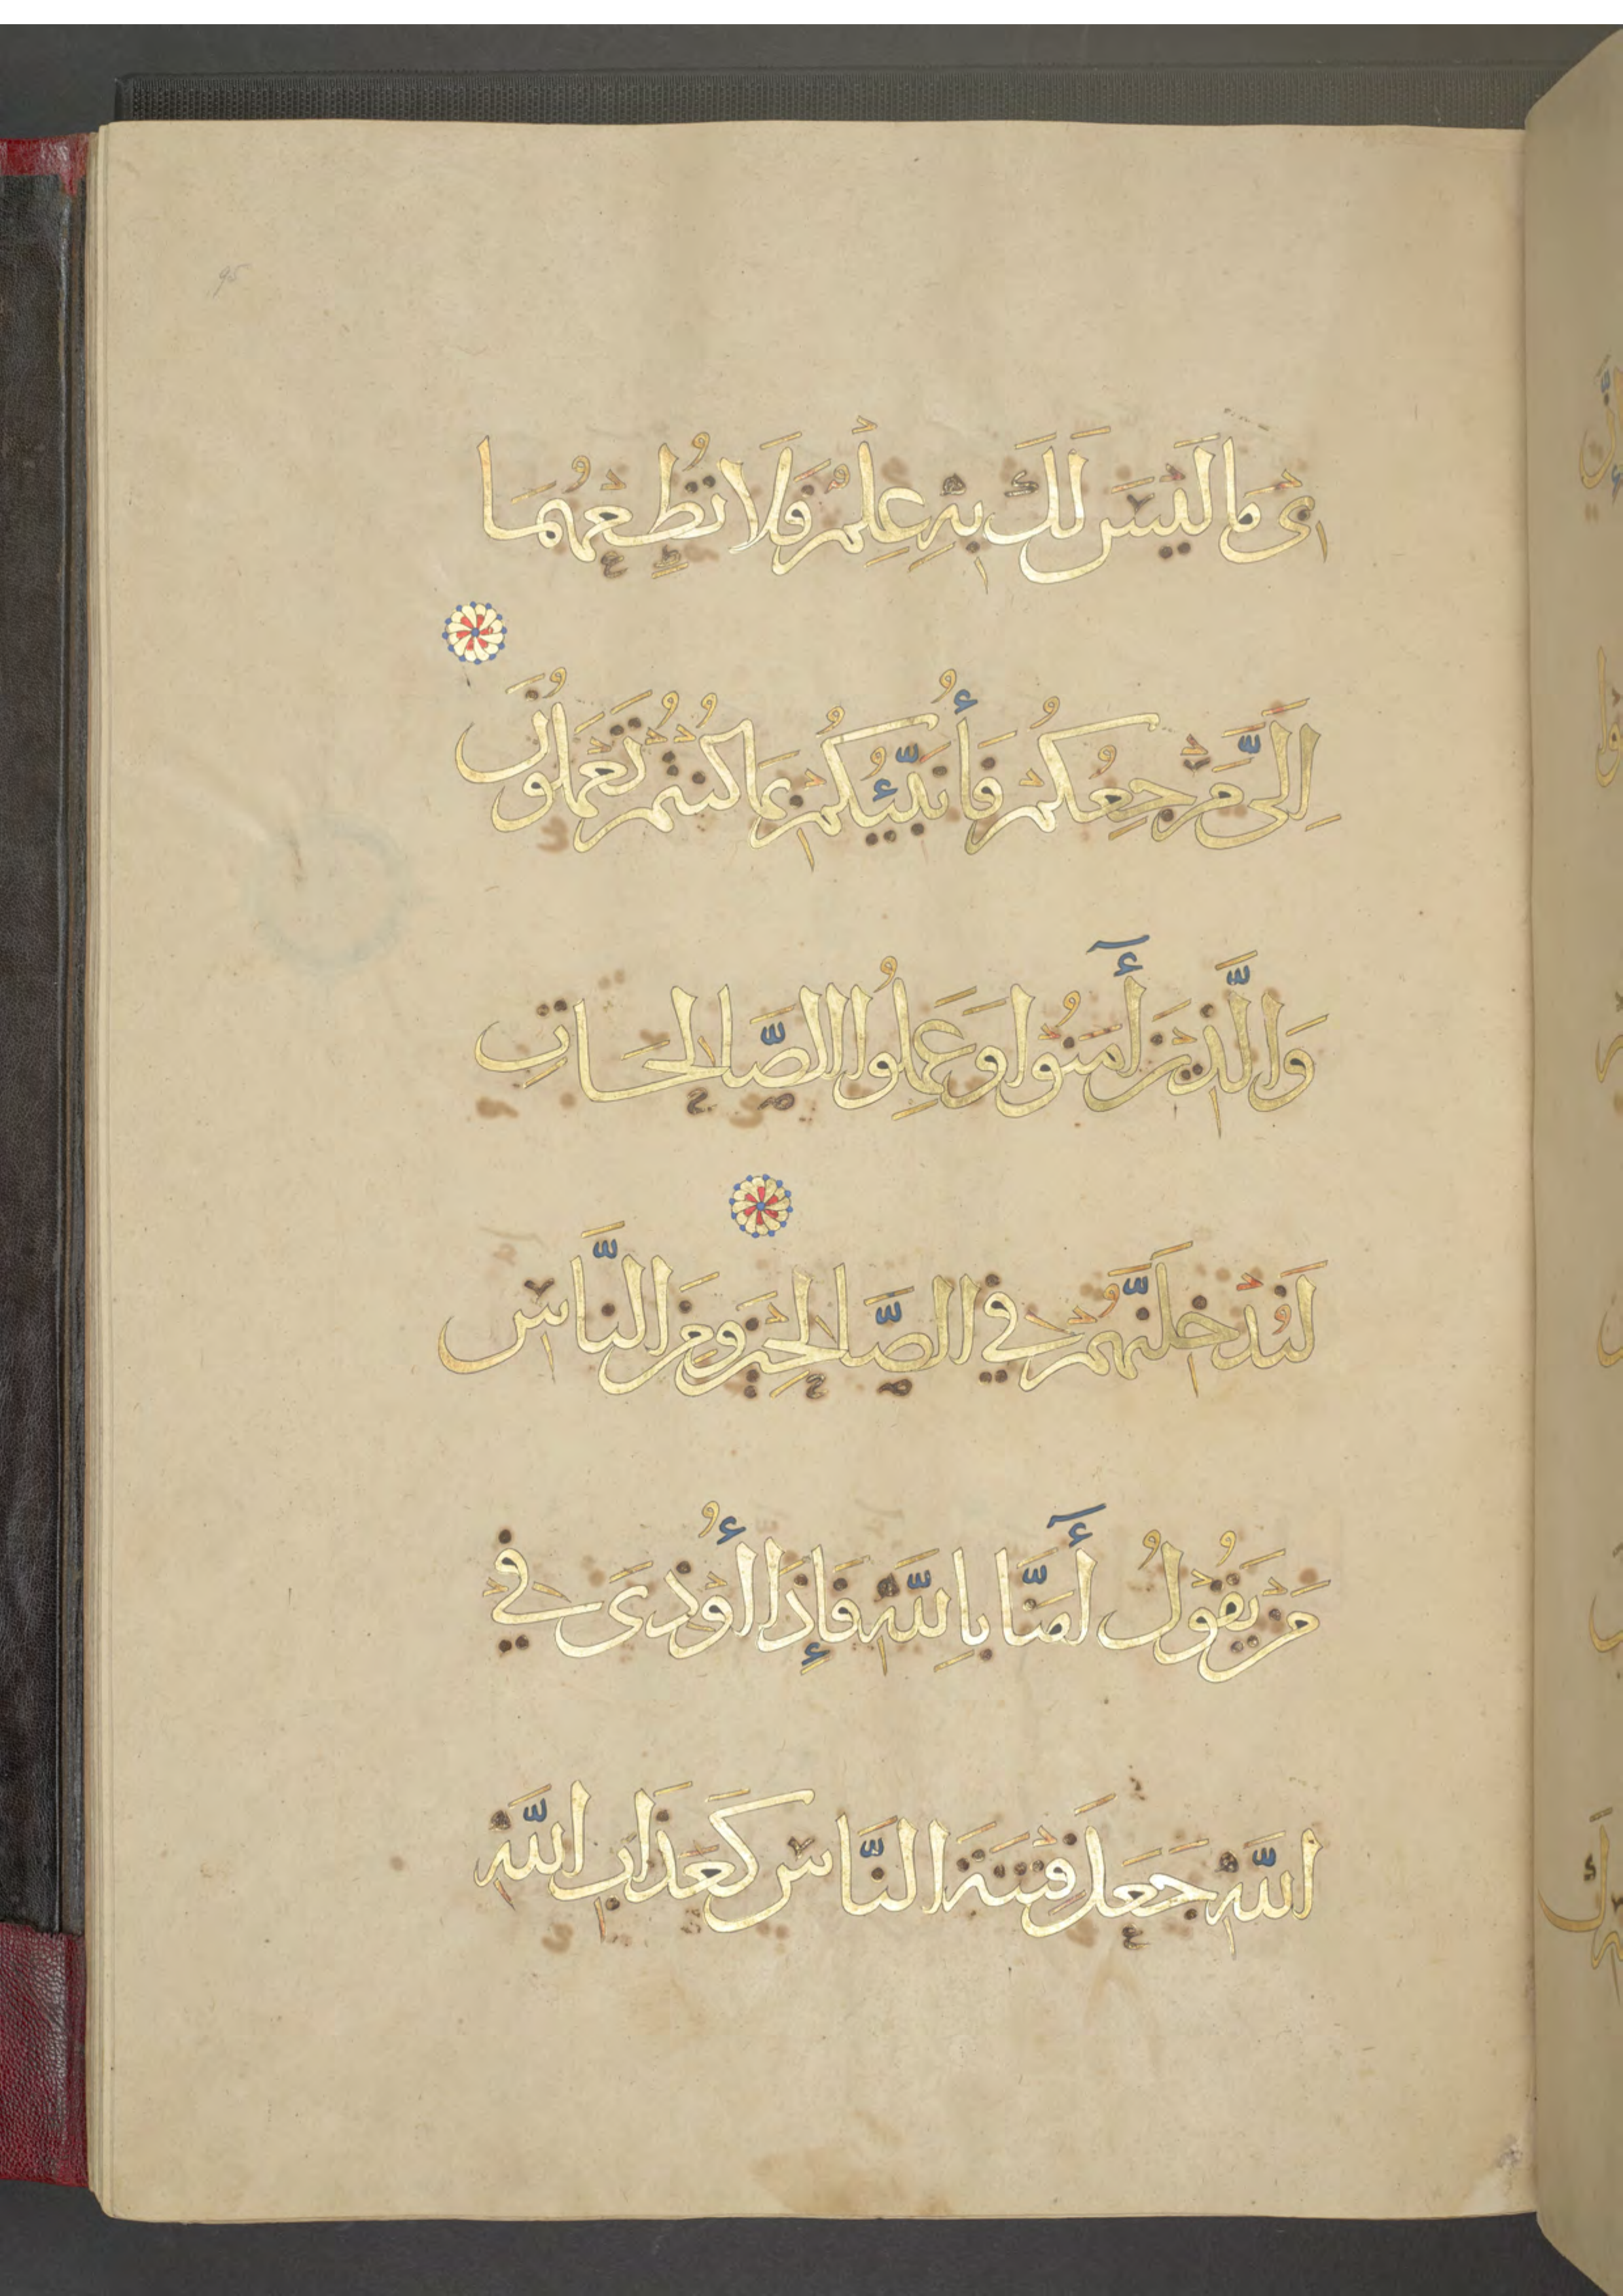 95
ى مَا لَيْسَ لَكَ بِهِ عِلْمٌ فَلَا تُطِعْهُمَا
اِلَىَّ مَرْجِعُكُمْ فَأُنَبِّئُكُمْ بِمَا كُنْتُمْ تَعْمَلُونَ
وَالَّذِيْنَ أٓمَنُوْا وَعَمِلُوا الصَّالِحَاتِ
لَنُدْخِلَنَّهُمْ فِي الصَّالِحِيْنَ وَمِنَ النَّاسِ
مَنْ يَقُوْلُ أٓمَنَّا بِاللَّهِ فَإِذَا أُوْذِىَ فِي
اللَّهِ جَعَلَ فِتْنَةَ النَّاسِ كَعَذَابِ اللَّهِ